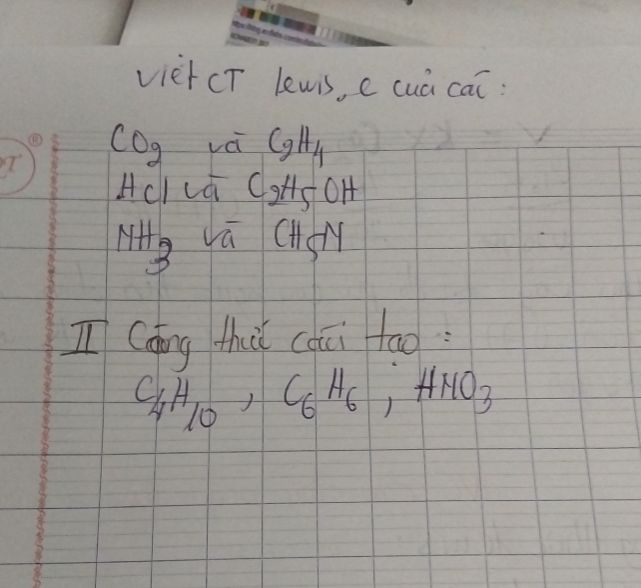 Viết CT lewis, e của các:
CO2 và C2H4
HCl và C2H5OH
NH3 và CH5N
II Công thức cấu tạo:
C4H10, C6H6, HNO3